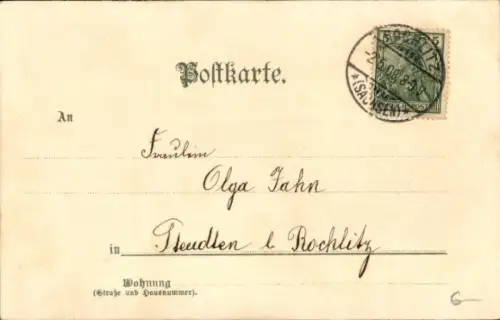 ROCHLITZ
(SACHSEN)
Postkarte.
An
Fräulein
Olga Jahn
in
Steudten b Rochlitz
Wohnung
(Straße und Hausnummer).
6-